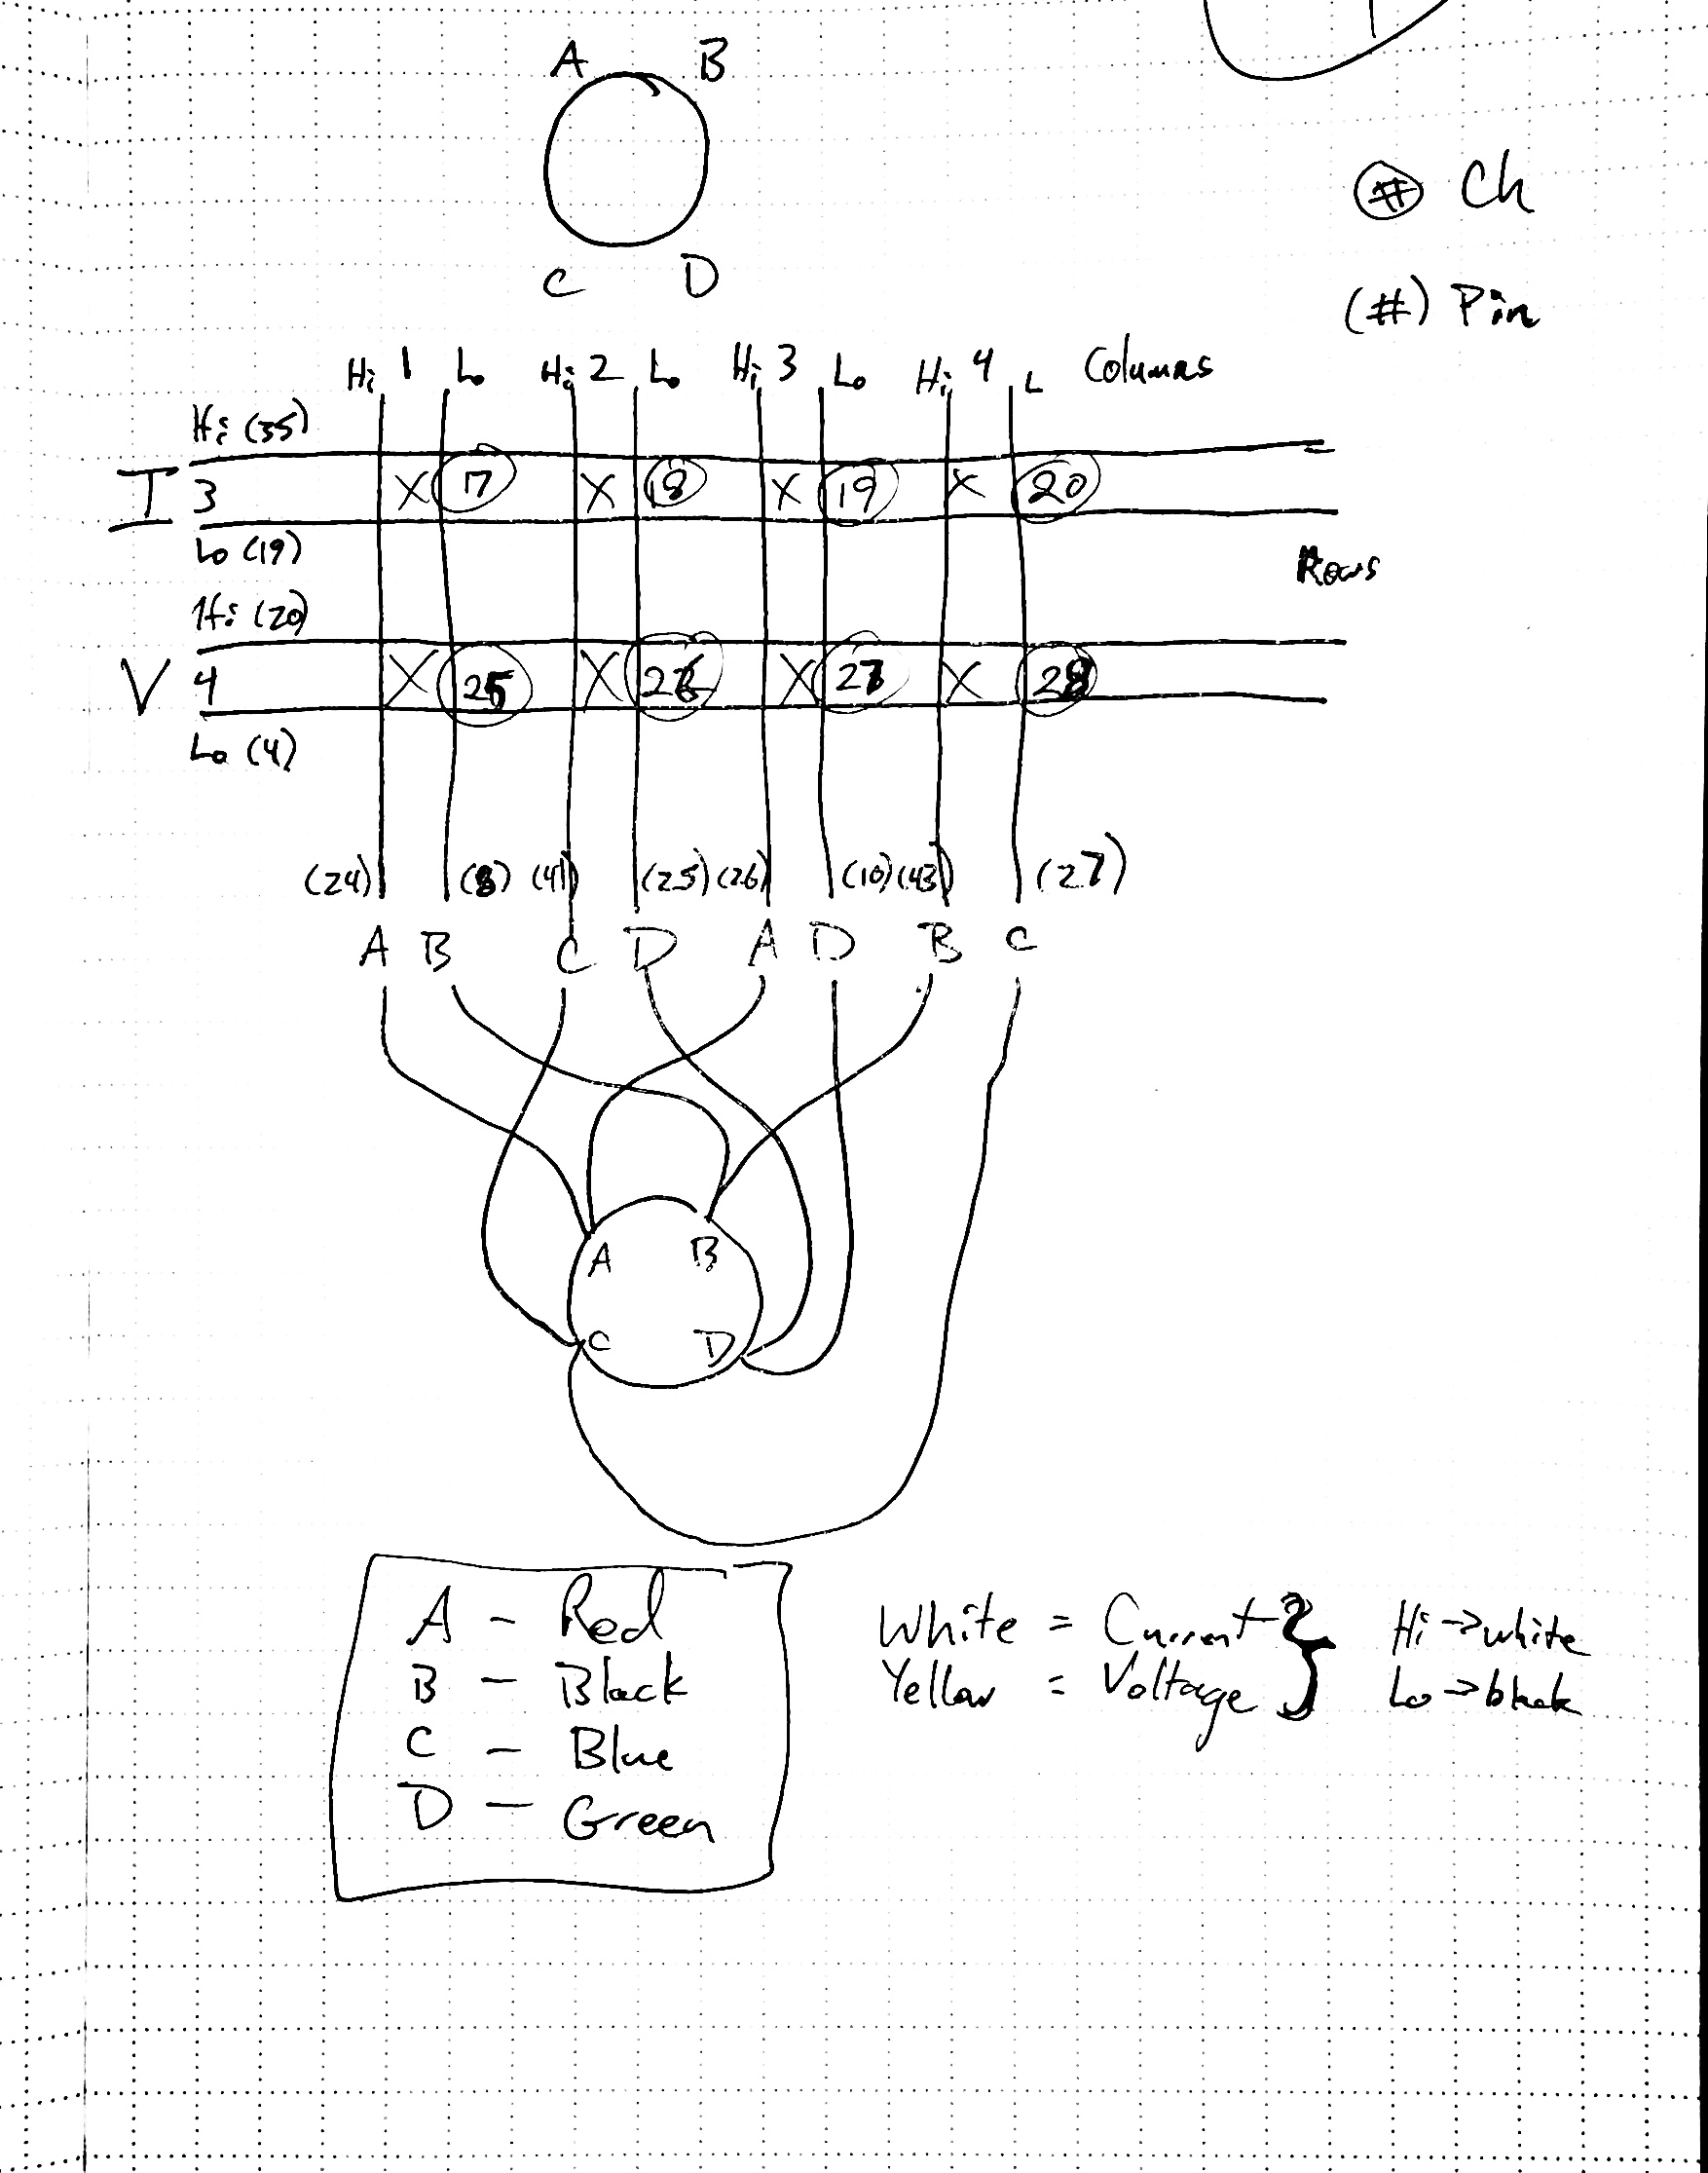 A B
C D
# Ch
(#) Pin
Hi 1 Lo Hi 2 Lo Hi 3 Lo Hi 4 L Columns
Hi (35)
I 3 X 17 X 18 X 19 X 20
Lo (19)
Rows
Hi (20)
V 4 X 25 X 26 X 27 X 28
Lo (4)
(24) (8) (41) (25) (26) (10) (43) (27)
A B C D A D B C
A B
C D
A - Red
B - Black
C - Blue
D - Green
White = Current } Hi → white
Yellow = Voltage } Lo → black